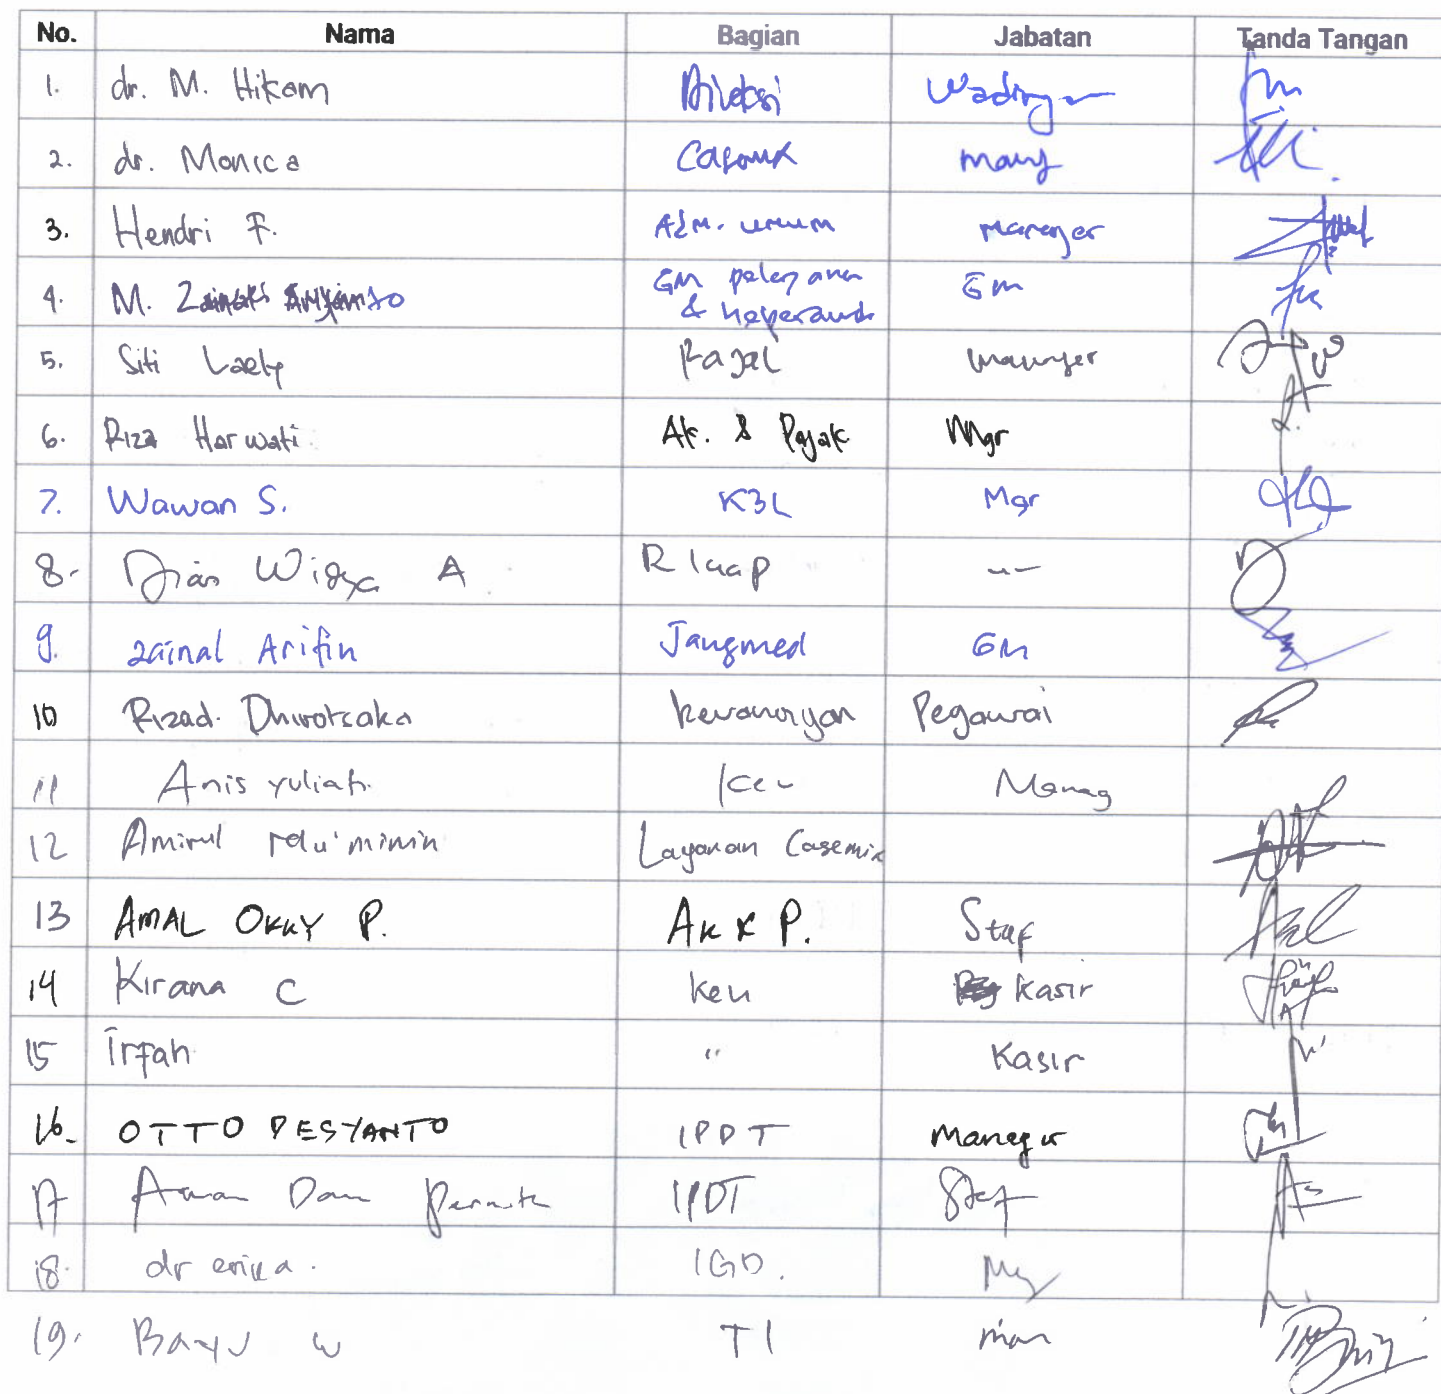 No. Nama Bagian Jabatan Tanda Tangan
1. dr. M. Hikam Direksi Wadir
2. dr. Monica Manj
3. Hendri F. Adm. umum Manager
4. M. GM pelayanan GM
&
5. Siti Laely Rajal Manager
6. Riza Harwati Ak. & Pajak Mgr
7. Wawan S. K3L Mgr
8. Dian Widya A R Inap
9. Zainal Arifin Jangmed GM
10 Rizad. Dhwotsaka keuangan Pegawai
11 Anis yuliati Keu Manag
12 Amirul Mu'minin Layanan Casemix
13 AMAL OKKY P. AK & P. Staf
14 Kirana C Keu Kasir
15 Irfan " Kasir
16. OTTO DESYANTO IPDT Manager
17 IPDT Staf
18. dr erika. IGD.
19. BAYU W TI man